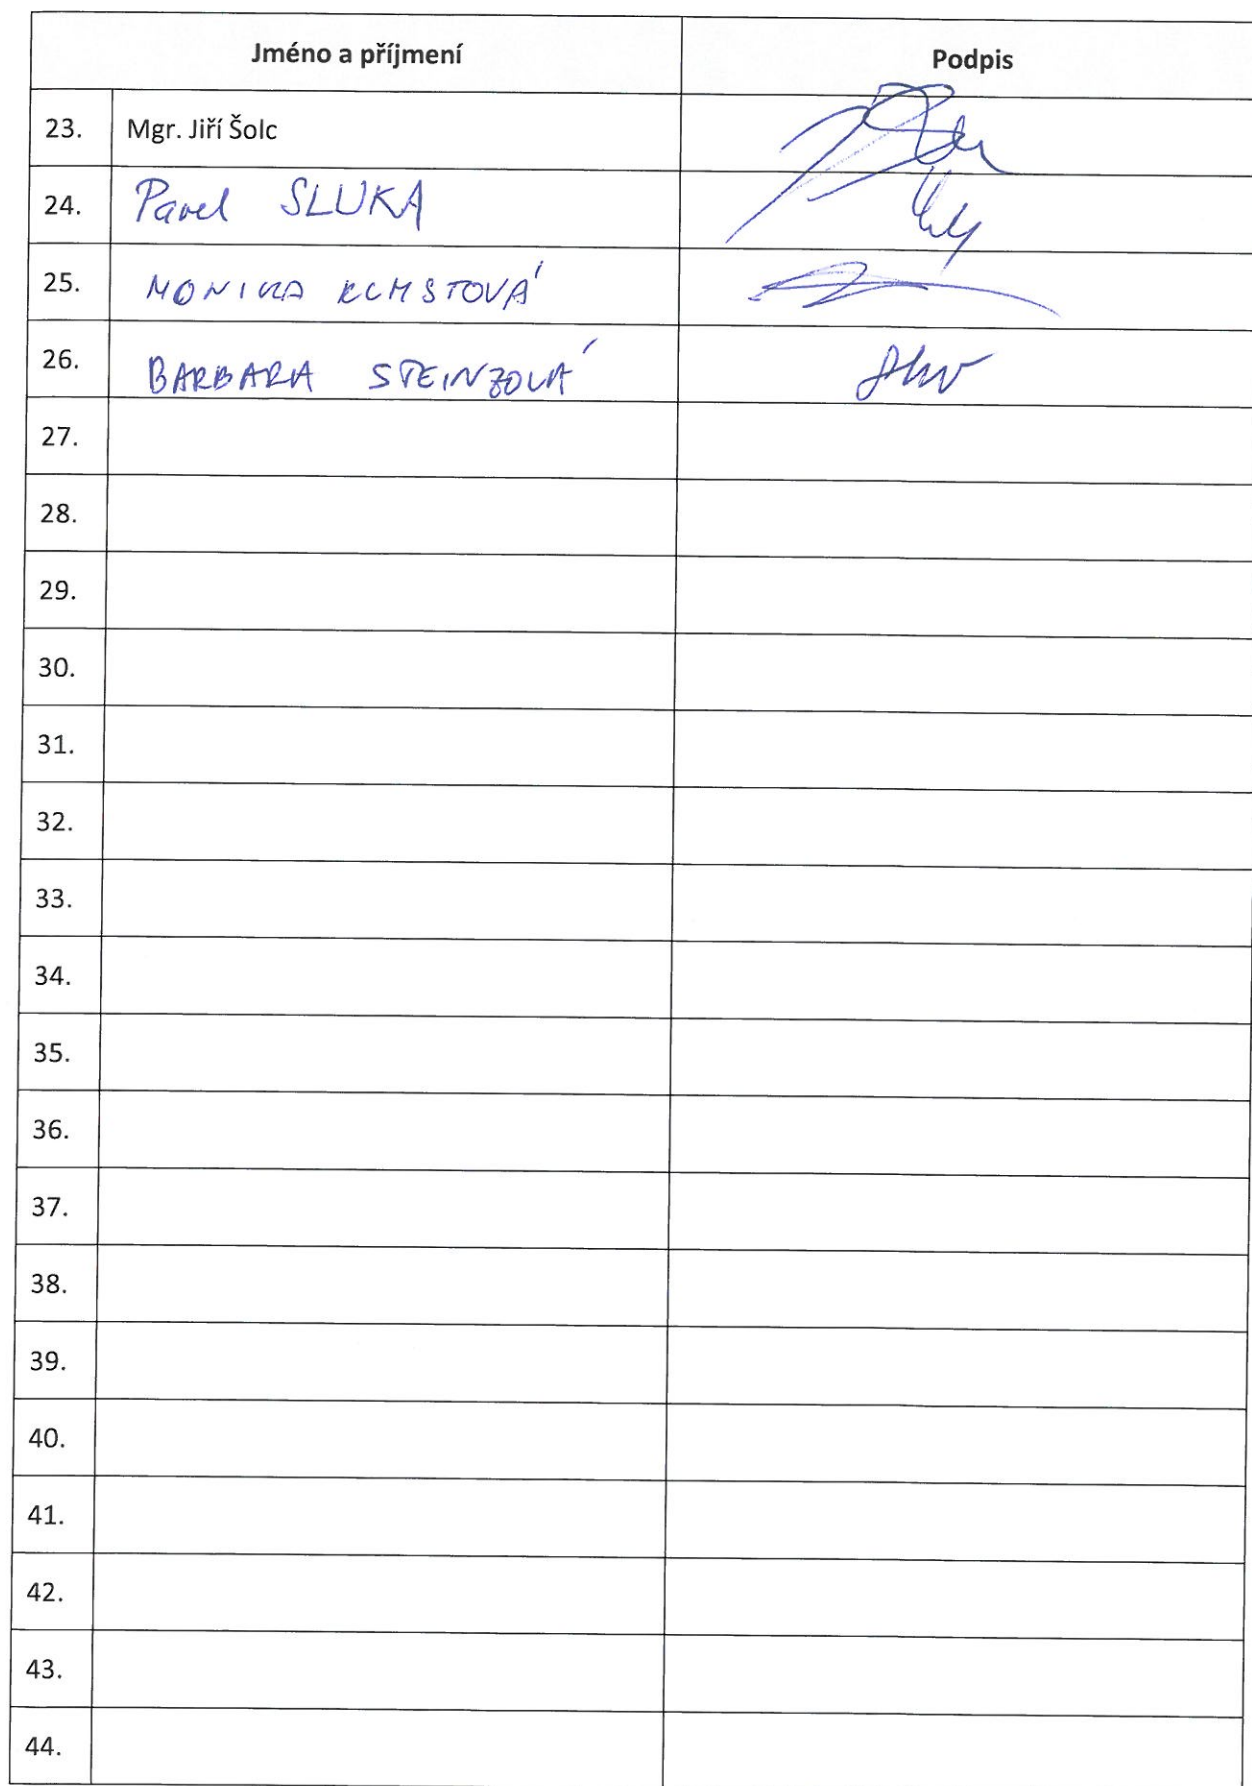 Jméno a příjmení Podpis
23. Mgr. Jiří Šolc
24. Pavel SLUKA
25. MONIKA
26. BARBARA STEINZOVÁ
27.
28.
29.
30.
31.
32.
33.
34.
35.
36.
37.
38.
39.
40.
41.
42.
43.
44.